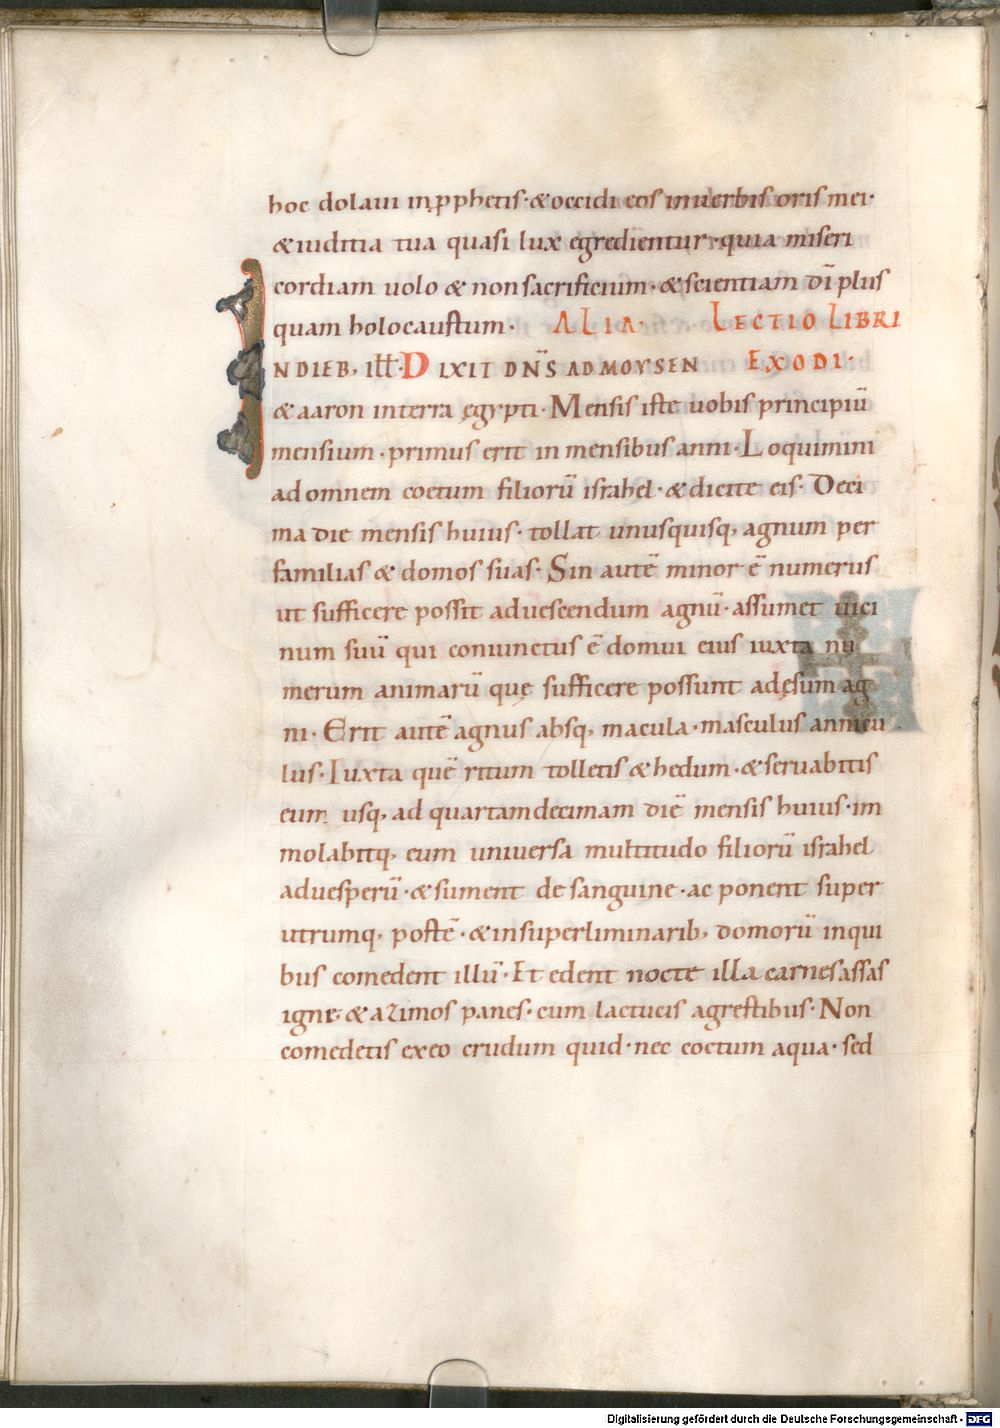 hoc dolaui inpphetis · & occidi eos inuerbis oris mei ·
& iuditia tua quasi lux egredientur · quia miseri
cordiam uolo & non sacrificium · & scientiam dī plus
quam holocaustum · ALIA · LECTIO LIBRI
INDIEB, ILL · DIXIT DN̄S AD MOYSEN EXODI ·
& aaron interra ęgypti · Mensis iste uobis principiū
mensium · primus erit in mensibus anni · Loquimini
ad omnem coetum filiorū israhel · & dicite eis · Deci
ma die mensis huius · tollat unusquisq, agnum per
familias & domos suas · Sin autē minor ē numerus
ut sufficere possit aduescendum agnū · assumet uici
num suū qui coniunctus ē domui eius iuxta nu
merum animarū quę sufficere possunt adęsum ag
ni · Erit autē agnus absq, macula · masculus annicu
lus · Iuxta quē ritum tolletis & hedum · & seruabitis
eum usq, ad quartamdecimam diē mensis huius · im
molabitq, eum uniuersa multitudo filiorū israhel
aduesperū · & sument de sanguine · ac ponent super
utrumq, postē · & insuperliminarib, domorū inqui
bus comedent illū · Et edent nocte illa carnes assas
igni · & azimos panes · cum lactucis agrestibus · Non
comedetis exeo crudum quid · nec coctum aqua · sed
Digitalisierung gefördert durch die Deutsche Forschungsgemeinschaft - DFG